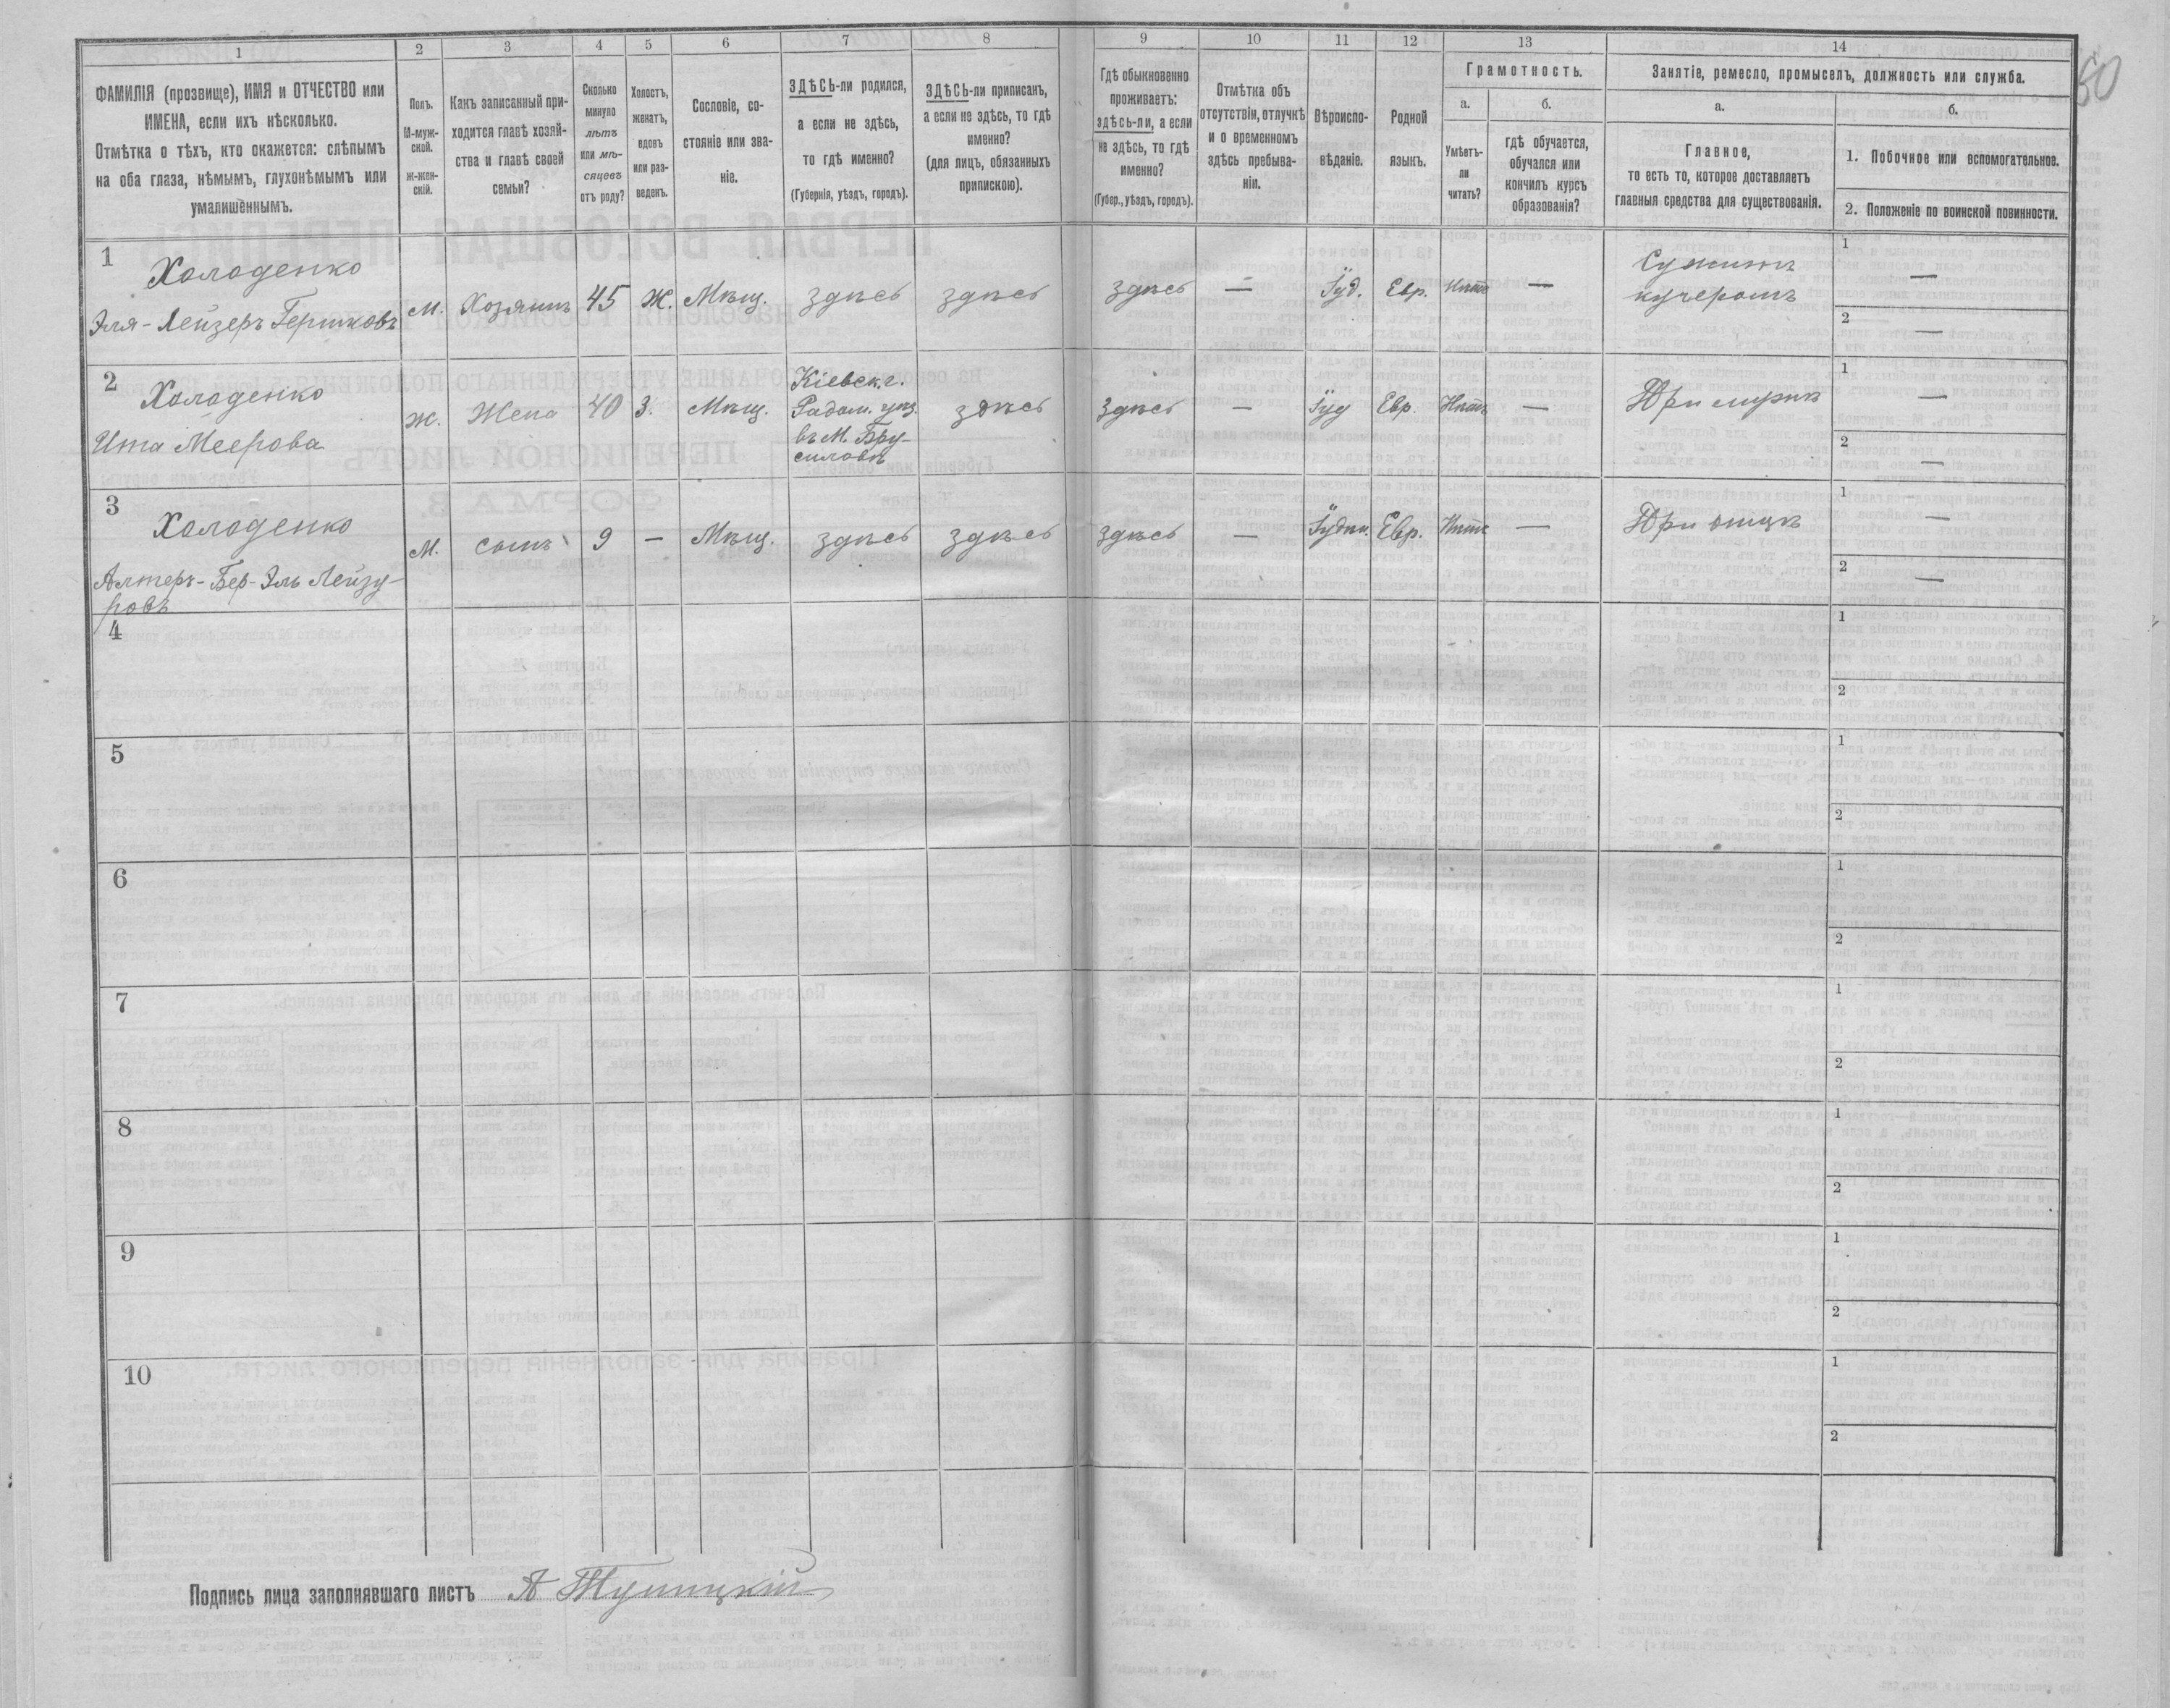 50
1 2 3 4 5 6 7 8 9 10 11 12 13 14
ФАМИЛІЯ (прозвище), ИМЯ и ОТЧЕСТВО или
ИМЕНА, если ихъ нѣсколько.
Отмѣтка о тѣхъ, кто окажется: слѣпымъ
на оба глаза, нѣмымъ, глухонѣмымъ или
умалишеннымъ.
Полъ.
М-муж-
ской.
ж-жен-
скій.
Какъ записанный при-
ходится главѣ хозяй-
ства и главѣ своей
семьи?
Сколько
минуло
лѣтъ
или мѣ-
сяцевъ
отъ роду?
Холостъ,
женатъ,
вдовъ
или раз-
веденъ.
Сословіе, со-
стояніе или зва-
ніе.
ЗДѢСЬ-ли родился,
а если не здѣсь,
то гдѣ именно?
(Губернія, уѣздъ, городъ).
ЗДѢСЬ-ли приписанъ,
а если не здѣсь, то гдѣ
именно?
(для лицъ, обязанныхъ
припискою).
Гдѣ обыкновенно
проживаетъ:
здѣсь-ли, а если
не здѣсь, то гдѣ
именно?
(Губер., уѣздъ, городъ).
Отмѣтка объ
отсутствіи, отлучкѣ
и о временномъ
здѣсь пребыва-
ніи.
Вѣроиспо-
вѣданіе.
Родной
языкъ.
Грамотность.
а.
Умѣетъ-
ли
читать?
б.
гдѣ обучается,
обучался или
кончилъ курсъ
образованія?
Занятіе, ремесло, промыселъ, должность или служба.
а.
Главное,
то есть то, которое доставляетъ
главныя средства для существованія.
б.
1. Побочное или вспомогательное.
2. Положеніе по воинской повинности.
1
Холоденко
Эля-Лейзеръ Гершковъ
М. Хозяинъ 45 Ж. Мѣщ. здѣсь здѣсь здѣсь — Іуд. Евр. Нѣтъ —
Служитъ
кучеромъ
1 —
2 —
2
Холоденко
Ита Меерова
Ж. Жена 40 З. Мѣщ.
Кіевск. г.
Радом. уѣз.
въ М. Бру-
силовѣ
здѣсь здѣсь — Іуд Евр. Нѣтъ — При мужѣ
1 —
2 —
3
Холоденко
Алтеръ-Бер-Эль Лейзу-
ровъ
М. сынъ 9 — Мѣщ. здѣсь здѣсь здѣсь — Іудѣи. Евр. Нѣтъ — При отцѣ
1 —
2 —
4
1
2
5
1
2
6
1
2
7
1
2
8
1
2
9
1
2
10
1
2
Подпись лица заполнявшаго листъ